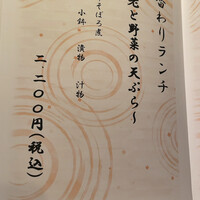 替わりランチ
老と野菜の天ぷら～
そぼろ煮
小鉢 漬物 汁物
二、二〇〇円（税込）